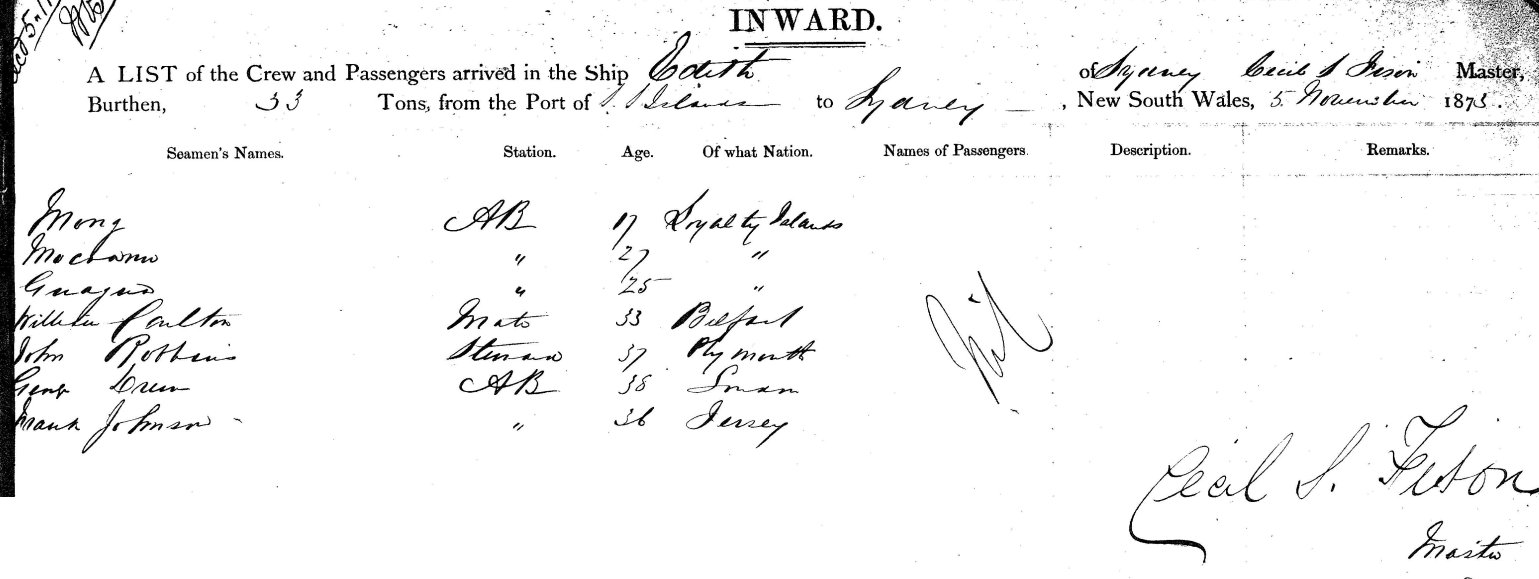 INWARD.
A LIST of the Crew and Passengers arrived in the Ship Edith of Sydney Cecil S Fison Master,
Burthen, 33 Tons, from the Port of S. S Islands to Sydney, New South Wales, 5 November 1873.
Seamen's Names. Station. Age. Of what Nation. Names of Passengers. Description. Remarks.
Mong AB 17 Loyalty Islands
" 27 "
" 25 "
Nil
Coulton Mate 33 Belfast
John Robbins Steward 37 Plymouth
AB 38
Frank Johnson - " 36 Jersey
Cecil S. Fison
Master